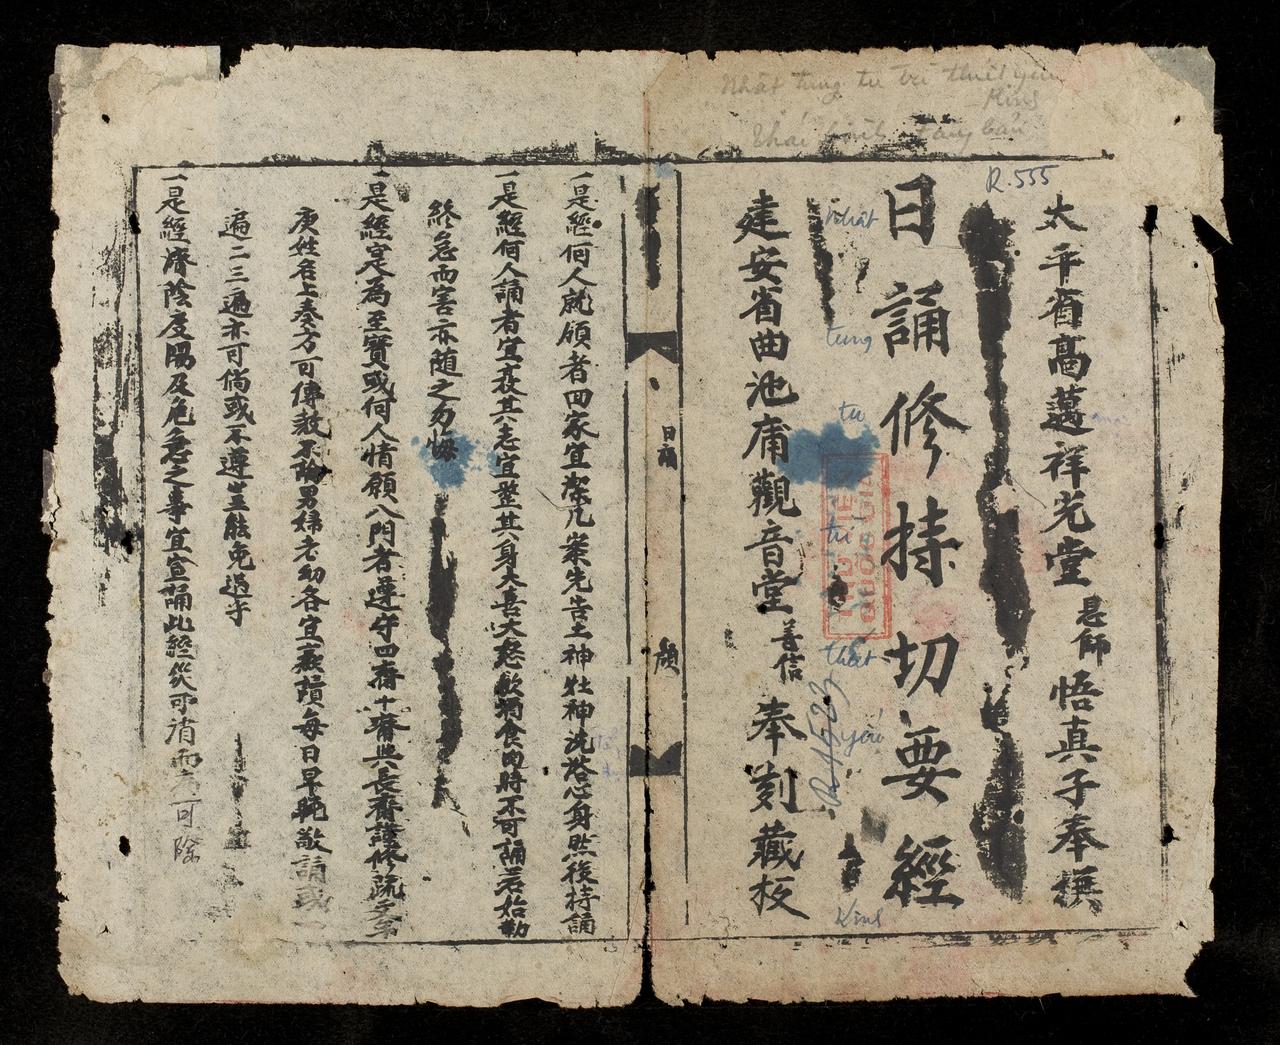 R.555
太平省高邁祥光堂恩師悟真子奉撰
日誦修持切要經
Nhật tụng tu trì thiết yếu Kinh
R.4523
建安省曲池庯觀音堂善信奉刻藏板
THƯ VIỆN
QUỐC GIA
日誦
願
一是經何人就願者回家宜潔几案先告土神灶神洗浴心身然後持誦
一是經何人誦者宜裒其志宜整其身大喜大怒飲酒食肉時不可誦若始勤
終怠而害亦随之勿悔
一是經寔為至寶或何人情願入門者遵守四齋十齋與長齋謹修疏文第
庚姓名上奏方可傳教不論男婦老幼各宜熟讀每日早晚敬誦或一
遍二三遍亦可倘或不遵豈能免過乎
一是經濟陰度陽及危急之事宜宣誦此經災可消而可除